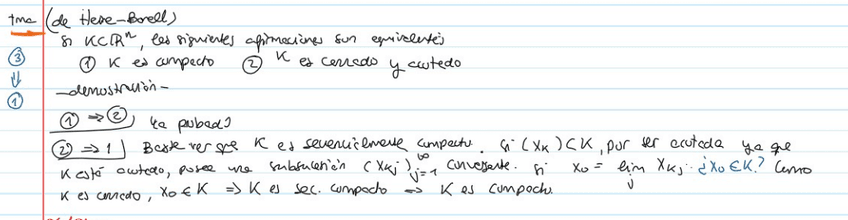 tma (de Heine-Borell)
Si K⊂ℝⁿ, las siguientes afirmaciones son equivalentes
① K es compacto ② K es cerrado y acotado
③ ⇓ ①
—demostración—
① ⇒ ② Ya probado
② ⇒ 1 Basta ver que K es secuencialmente compacto. Si (X_K) ⊂ K, por ser acotada ya que
K está acotado, posee una subsucesión (X_Kj)_{j=1}^∞ convergente. Si X₀ = lim_j X_Kj. ¿X₀ ∈ K? Como
K es cerrado, X₀ ∈ K ⇒ K es sec. compacto ⇒ K es compacto